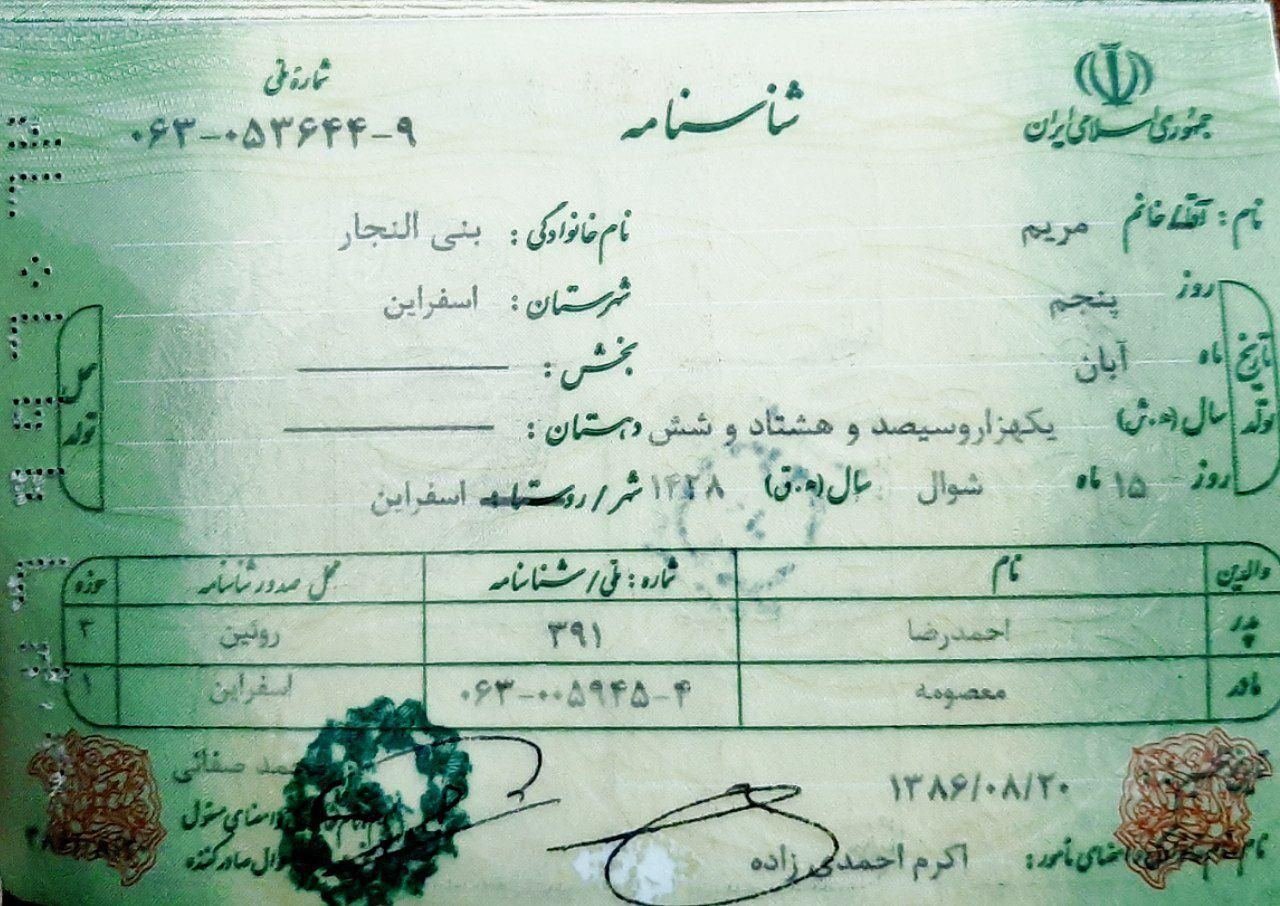 جمهوری اسلامی ایران
شناسنامه
شماره ملی
۰۶۳-۰۵۳۶۴۴-۹
نام : آقا/خانم مریم نام خانوادگی : بنی النجار
تاریخ تولد
روز پنجم
ماه آبان
سال (ه.ش) یکهزاروسیصد و هشتاد و شش
روز ۱۵ ماه شوال سال (ه.ق) ۱۴۲۸
محل تولد
شهرستان : اسفراین
بخش :
دهستان :
شهر / روستا : اسفراین
والدین نام شماره : ملی / شناسنامه محل صدور شناسنامه حوزه
پدر احمدرضا ۳۹۱ روئین ۲
مادر معصومه ۰۶۳-۰۰۵۹۴۵-۴ اسفراین ۱
۱۳۸۶/۰۸/۲۰
صفائی
امضای مأمور : اکرم احمدی زاده
امضای مسئول
صادرکننده